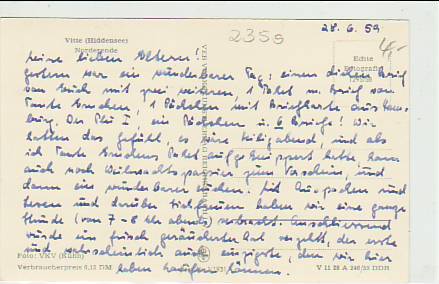 28. 6. 59
2355
4,-
Vitte (Hiddensee)
Norderende
Echte
Fotografie
Meine lieben Eltern!
gestern war ein wunderbarer Tag: einen dicken Brief
von Euch mit zwei weiteren, 1 Paket m. Brief von
Tante 1 Päckchen mit Briefkarte aus Ham-
burg. Das ein Päckchen u. 6 Briefe! Wir
hatten das Gefühl, es wäre Heiligabend, und als
ich Tante Paket aufgeknüppert hatte, kam
auch noch Weihnachtspapier zum Vorschein, und
dann ein wunderbarer Kuchen. Mit und
lesen und darüber haben wir eine ganze
Stunde (von 7-8 Uhr abends) verbracht. Anschliessend
wurde ein frisch geräucherter Aal verzehrt, der erste
und wahrscheinlich auch einzigste, den wir hier
haben kaufen können.
Foto: VKV (Kühn)
Verbraucherpreis 0,12 DM
V 11 28 A 240/55 DDR